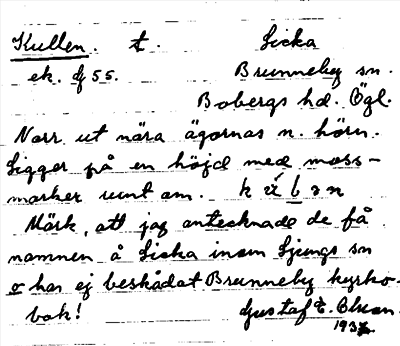 Kullen. t. Sicka
ek. df 55. Brunneby sn.
Bobergs hd. Ögl.
Norr ut nära ägornas n. hörn.
Ligger på en höjd med moss-
marker runt om.
Märk, att jag antecknade de få
namnen å Sicka inom Ljungs sn
o har ej beskådat Brunneby kyrko-
bok! Gustaf E. Olson.